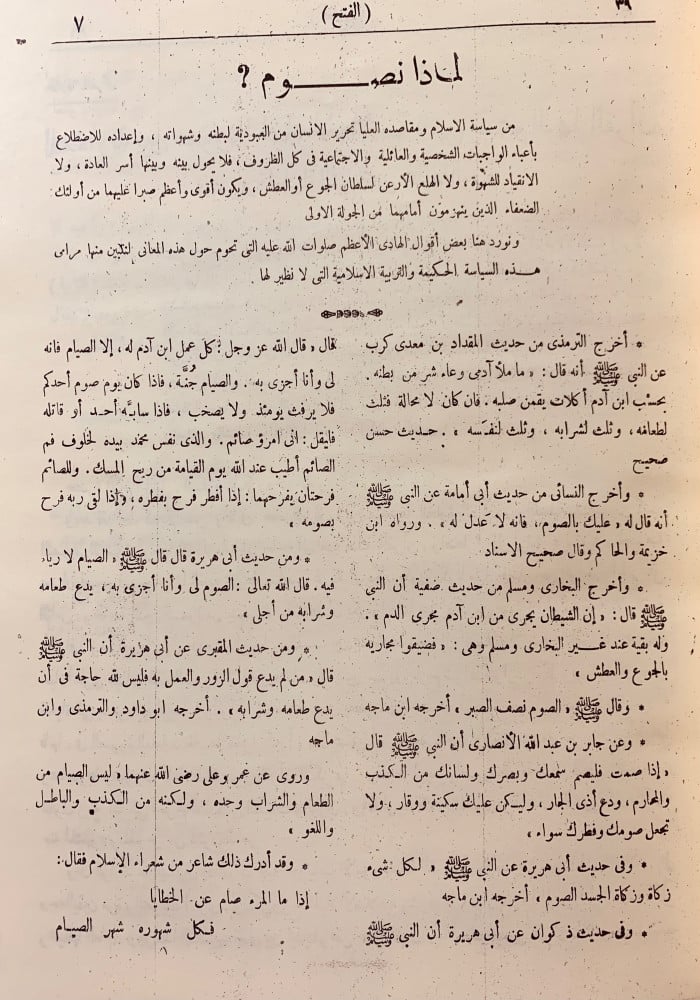 ٣٩
( الفتح )
٧
لماذا نصوم ؟
من سياسة الاسلام ومقاصده العليا تحرير الانسان من العبودية لبطنه وشهواته ، وإعداده للاضطلاع
بأعباء الواجبات الشخصية والعائلية والاجتماعية فى كل الظروف ، فلا يحول بينه وبينها أسر العادة ، ولا
الانقياد للشهوة ، ولا الهلع الأرعن لسلطان الجوع أو العطش ، ويكون أقوى وأعظم صبرا عليهما من أولئك
الضعفاء الذين ينهزمون أمامهما من الجولة الاولى
ونورد هنا بعض أقوال الهادى الأعظم صلوات الله عليه التى تحوم حول هذه المعانى لنتبين منها مرامى
هذه السياسة الحكيمة والتربية الاسلامية التى لا نظير لها .
* أخرج الترمذى من حديث المقداد بن معدى كرب
عن النبي ﷺ أنه قال : « ما ملأ آدمى وعاء شر من بطنه .
بحسب ابن آدم أكلات يقمن صلبه . فان كان لا محالة فثلث
لطعامه ، وثلث لشرابه ، وثلث لنفسه » . حديث حسن
صحيح
* وأخرج النسائى من حديث أبى أمامة عن النبي ﷺ
أنه قال له « عليك بالصوم ، فانه لا عدل له » . ورواه ابن
خزيمة والحاكم وقال صحيح الاسناد
* وأخرج البخارى ومسلم من حديث صفية أن النبي
ﷺ قال : « إن الشيطان يجرى من ابن آدم مجرى الدم » .
وله بقية عند غير البخارى ومسلم وهى : « فضيقوا مجاريه
بالجوع والعطش »
* وقال ﷺ « الصوم نصف الصبر » أخرجه ابن ماجه
* وعن جابر بن عبد الله الأنصارى أن النبي ﷺ قال
« إذا صمت فليصم سمعك وبصرك ولسانك من الكذب
والمحارم ، ودع أذى الجار ، وليكن عليك سكينة ووقار ، ولا
تجعل صومك وفطرك سواء »
* وفى حديث أبى هريرة عن النبي ﷺ « لكل شىء
زكاة وزكاة الجسد الصوم » أخرجه ابن ماجه
* وفى حديث ذكوان عن أبى هريرة أن النبي ﷺ
قال « قال الله عز وجل : كل عمل ابن آدم له ، إلا الصيام فانه
لى وأنا أجزى به . والصيام جُنَّة ، فاذا كان يوم صوم أحدكم
فلا يرفث يومئذ ولا يصخب ، فاذا سابَّه أحد أو قاتله
فليقل : انى امرؤ صائم . والذى نفس محمد بيده لخلوف فم
الصائم أطيب عند الله يوم القيامة من ريح المسك . وللصائم
فرحتان يفرحهما : إذا أفطر فرح بفطره ، وإذا لقى ربه فرح
بصومه »
* ومن حديث أبى هريرة قال قال ﷺ « الصيام لا رياء
فيه . قال الله تعالى : الصوم لى وأنا أجزى به ، يدع طعامه
وشرابه من أجلى »
* ومن حديث المقبرى عن أبى هريرة أن النبي ﷺ
قال « من لم يدع قول الزور والعمل به فليس لله حاجة فى أن
يدع طعامه وشرابه » . أخرجه ابو داود والترمذى وابن
ماجه
وروى عن عمر وعلى رضى الله عنهما « ليس الصيام من
الطعام والشراب وحده ، ولكنه من الكذب والباطل
واللغو »
* وقد أدرك ذلك شاعر من شعراء الإسلام فقال :
إذا ما المرء صام عن الخطايا
فكل شهوره شهر الصيام